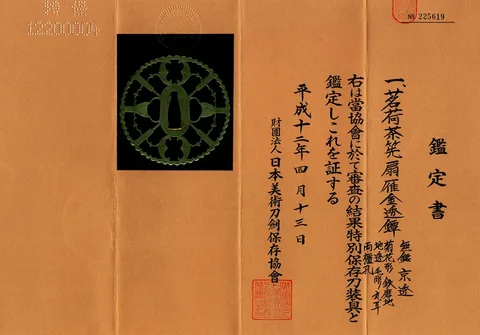 鑑定書
一、茗荷茶筅扇雁金透鐔
無銘 京透
菊花形 鉄磨地
地透 毛彫 丸耳
両櫃孔
右は當協會に於て審査の結果特別保存刀装具と
鑑定しこれを証する
平成十二年四月十三日
財團法人 日本美術刀劍保存協會
№ 225619
12200004